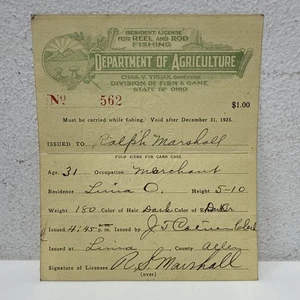 RESIDENT LICENSE
FOR REEL AND ROD
FISHING
DEPARTMENT OF AGRICULTURE
CHAS. V. TRUAX, DIRECTOR
DIVISION OF FISH & GAME
STATE OF OHIO
No. 562
$1.00
Must be carried while fishing. Void after December 31, 1925.
ISSUED TO Ralph Marshall
FOLD HERE FOR CARD CASE
Age, 31 Occupation, Merchant
Residence Lima O. Height 5-10
Weight 180 Color of Hair Dark Color of Eyes Dark
Issued 4:45 P.m. Issued by J. S. Clerk
Issued at Lima County Allen
Signature of Licensee R. S. Marshall
(over)